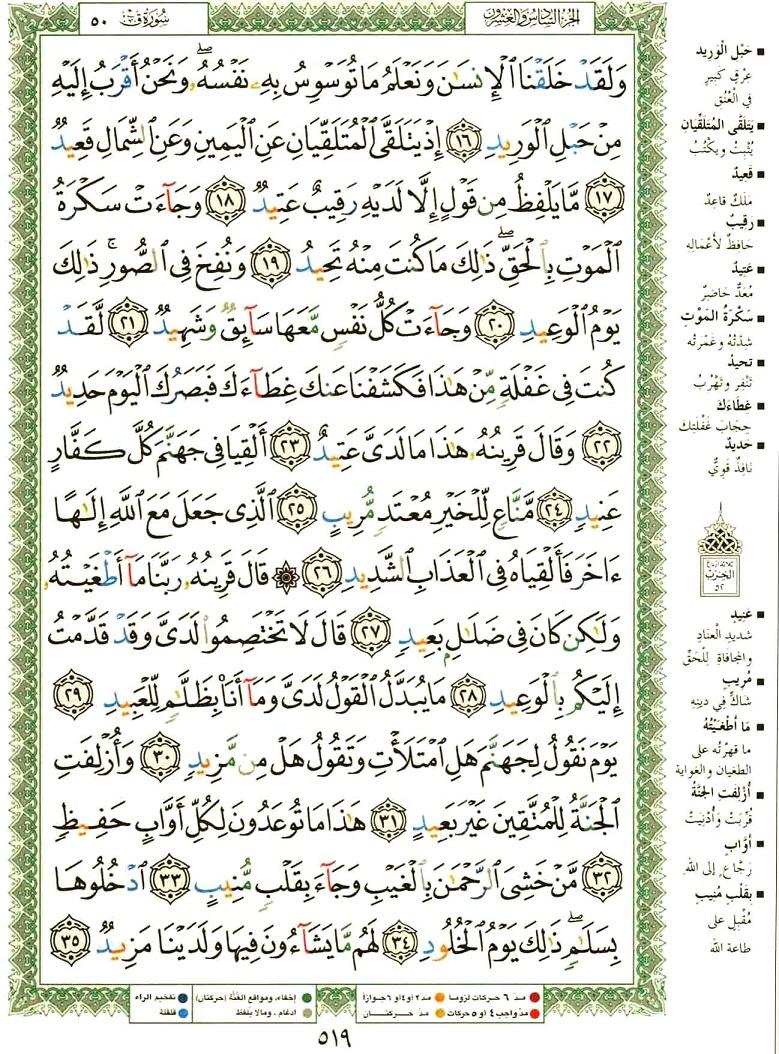 الجزء السادس والعشرون
سورة ق ٥٠
وَلَقَدْ خَلَقْنَا ٱلْإِنسَٰنَ وَنَعْلَمُ مَا تُوَسْوِسُ بِهِۦ نَفْسُهُۥ ۖ وَنَحْنُ أَقْرَبُ إِلَيْهِ
مِنْ حَبْلِ ٱلْوَرِيدِ ١٦ إِذْ يَتَلَقَّى ٱلْمُتَلَقِّيَانِ عَنِ ٱلْيَمِينِ وَعَنِ ٱلشِّمَالِ قَعِيدٌ
١٧ مَّا يَلْفِظُ مِن قَوْلٍ إِلَّا لَدَيْهِ رَقِيبٌ عَتِيدٌ ١٨ وَجَآءَتْ سَكْرَةُ
ٱلْمَوْتِ بِٱلْحَقِّ ۖ ذَٰلِكَ مَا كُنتَ مِنْهُ تَحِيدُ ١٩ وَنُفِخَ فِى ٱلصُّورِ ۚ ذَٰلِكَ
يَوْمُ ٱلْوَعِيدِ ٢٠ وَجَآءَتْ كُلُّ نَفْسٍ مَّعَهَا سَآئِقٌ وَشَهِيدٌ ٢١ لَّقَدْ
كُنتَ فِى غَفْلَةٍ مِّنْ هَٰذَا فَكَشَفْنَا عَنكَ غِطَآءَكَ فَبَصَرُكَ ٱلْيَوْمَ حَدِيدٌ
٢٢ وَقَالَ قَرِينُهُۥ هَٰذَا مَا لَدَىَّ عَتِيدٌ ٢٣ أَلْقِيَا فِى جَهَنَّمَ كُلَّ كَفَّارٍ
عَنِيدٍ ٢٤ مَّنَّاعٍ لِّلْخَيْرِ مُعْتَدٍ مُّرِيبٍ ٢٥ ٱلَّذِى جَعَلَ مَعَ ٱللَّهِ إِلَٰهًا
ءَاخَرَ فَأَلْقِيَاهُ فِى ٱلْعَذَابِ ٱلشَّدِيدِ ٢٦ ۞ قَالَ قَرِينُهُۥ رَبَّنَا مَآ أَطْغَيْتُهُۥ
وَلَٰكِن كَانَ فِى ضَلَٰلٍۭ بَعِيدٍ ٢٧ قَالَ لَا تَخْتَصِمُوا۟ لَدَىَّ وَقَدْ قَدَّمْتُ
إِلَيْكُم بِٱلْوَعِيدِ ٢٨ مَا يُبَدَّلُ ٱلْقَوْلُ لَدَىَّ وَمَآ أَنَا۠ بِظَلَّٰمٍ لِّلْعَبِيدِ ٢٩
يَوْمَ نَقُولُ لِجَهَنَّمَ هَلِ ٱمْتَلَأْتِ وَتَقُولُ هَلْ مِن مَّزِيدٍ ٣٠ وَأُزْلِفَتِ
ٱلْجَنَّةُ لِلْمُتَّقِينَ غَيْرَ بَعِيدٍ ٣١ هَٰذَا مَا تُوعَدُونَ لِكُلِّ أَوَّابٍ حَفِيظٍ
٣٢ مَّنْ خَشِىَ ٱلرَّحْمَٰنَ بِٱلْغَيْبِ وَجَآءَ بِقَلْبٍ مُّنِيبٍ ٣٣ ٱدْخُلُوهَا
بِسَلَٰمٍ ۖ ذَٰلِكَ يَوْمُ ٱلْخُلُودِ ٣٤ لَهُم مَّا يَشَآءُونَ فِيهَا وَلَدَيْنَا مَزِيدٌ ٣٥
حَبْلِ الْوَرِيدِ
عِرْقٍ كَبِيرٍ
فِي الْعُنُقِ
يَتَلَقَّى المُتَلَقِّيَانِ
يُثْبِتُ ويَكْتُبُ
قَعِيدٌ
مَلَكٌ قَاعِدٌ
رَقِيبٌ
حَافِظٌ لأَعْمَالِهِ
عَتِيدٌ
مُعَدٌّ حَاضِرٌ
سَكْرَةُ المَوْتِ
شِدَّتُهُ وغَمْرتُه
تَحِيدُ
تَنْفِرُ وتَهْرُبُ
غِطَاءَكَ
حِجَابَ غَفْلَتِكَ
حَدِيدٌ
نَافِذٌ قَوِيٌّ
ثلاثة أرباع
الحزب
٥٢
عَنِيدٍ
شَدِيدِ الْعِنَادِ
والمجَافَاةِ لِلْحَقِّ
مُرِيبٍ
شَاكٍّ فِي دِينِهِ
مَا أَطْغَيْتُهُ
ما قهرْتُه على
الطغيان والغواية
أُزْلِفَتِ الجَنَّةُ
قُرِّبَتْ وَأُدْنِيَتْ
أَوَّابٍ
رَجَّاعٍ إلى الله
بِقَلْبٍ مُنِيبٍ
مُقْبِلٍ على
طاعة الله
مد ٦ حركات لزوما مد ٢ أو ٤ أو ٦ جوازا إخفاء، ومواقع الغُنَّة (حركتان) تفخيم الراء
مد واجب ٤ أو ٥ حركات مد حركتان ادغام، ومالا يلفظ قلقلة
٥١٩